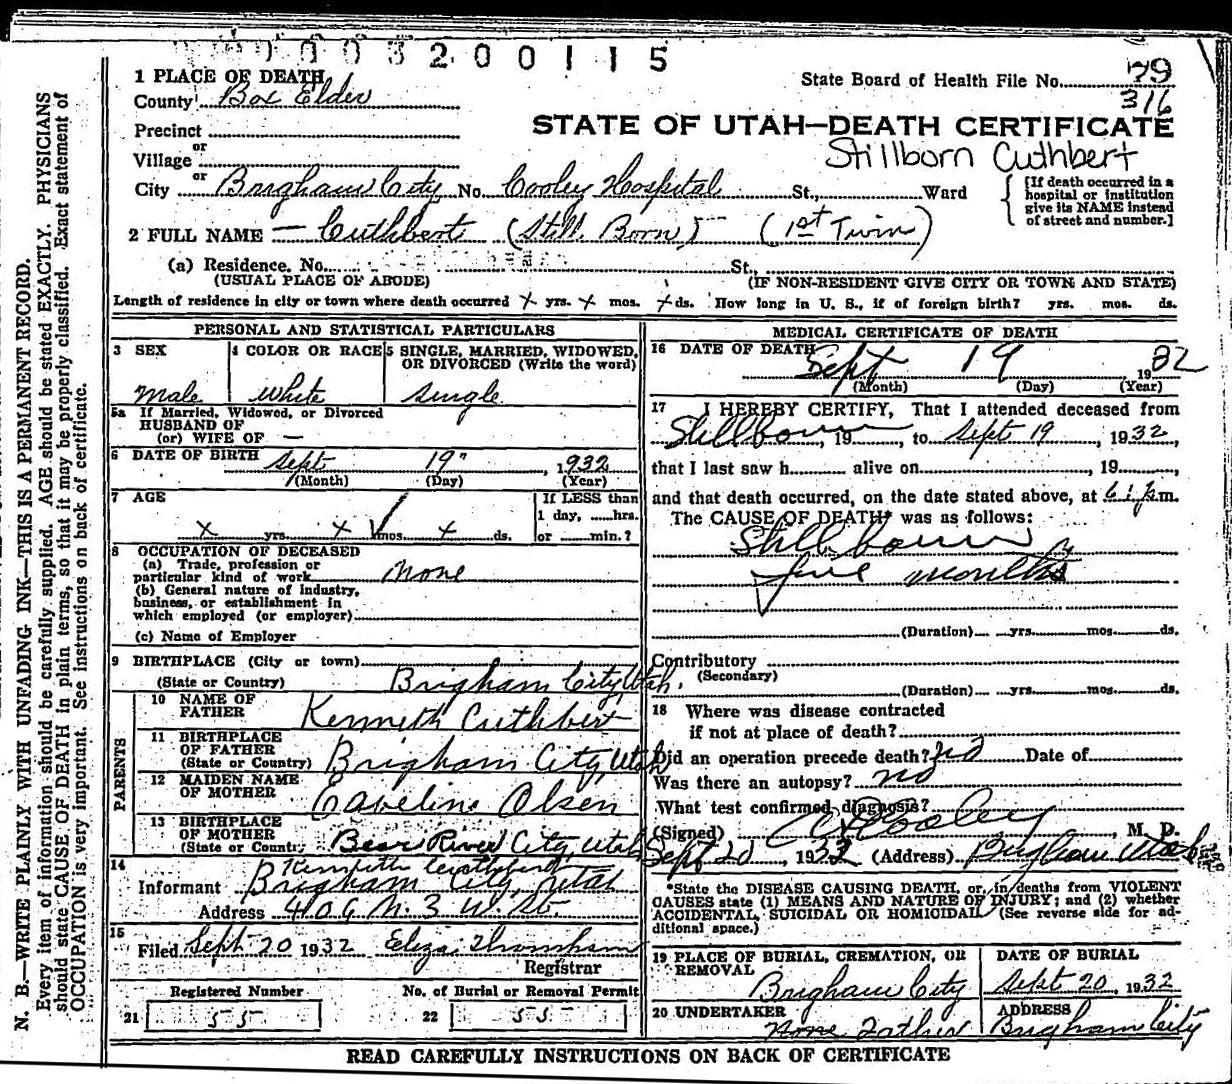 0003200115
1 PLACE OF DEATH
State Board of Health File No. 79
County Box Elder
316
Precinct
or
Village
or
STATE OF UTAH—DEATH CERTIFICATE
Stillborn Cuthbert
City Brigham City No. Cooley Hospital St., Ward
[If death occurred in a hospital or institution give its NAME instead of street and number.]
2 FULL NAME — Cuthbert (Still Born) (1st Twin)
(a) Residence. No. St.,
(USUAL PLACE OF ABODE) (IF NON-RESIDENT GIVE CITY OR TOWN AND STATE)
Length of residence in city or town where death occurred x yrs. x mos. x ds. How long in U. S., if of foreign birth? yrs. mos. ds.
PERSONAL AND STATISTICAL PARTICULARS
3 SEX 4 COLOR OR RACE 5 SINGLE, MARRIED, WIDOWED, OR DIVORCED (Write the word)
male white single
5a If Married, Widowed, or Divorced
HUSBAND OF
(or) WIFE OF —
6 DATE OF BIRTH Sept 19" , 1932
(Month) (Day) (Year)
7 AGE
If LESS than
1 day, ......hrs.
x yrs. x mos. x ds. or ......min.?
8 OCCUPATION OF DECEASED
(a) Trade, profession or
particular kind of work none
(b) General nature of industry,
business, or establishment in
which employed (or employer)
(c) Name of Employer
9 BIRTHPLACE (City or town)
(State or Country) Brigham City, Utah.
PARENTS
10 NAME OF FATHER Kenneth Cuthbert
11 BIRTHPLACE OF FATHER
(State or Country) Brigham City, Utah
12 MAIDEN NAME OF MOTHER Olsen
13 BIRTHPLACE OF MOTHER
(State or Country) Bear River City, Utah
14 Kenneth Cuthbert
Informant Brigham City, Utah
Address 406 N. 3 W. St.
15
Filed Sept 20 1932 Eliza
Registrar
Registered Number No. of Burial or Removal Permit
21 55 22 55
MEDICAL CERTIFICATE OF DEATH
16 DATE OF DEATH
Sept 19 1932
(Month) (Day) (Year)
17 I HEREBY CERTIFY, That I attended deceased from
Stillborn, 19......, to Sept 19, 1932,
that I last saw h...... alive on......, 19......,
and that death occurred, on the date stated above, at m.
The CAUSE OF DEATH* was as follows:
Stillborn
five months
(Duration) yrs. mos. ds.
Contributory
(Secondary)
(Duration) yrs. mos. ds.
18 Where was disease contracted
if not at place of death?
Did an operation precede death? no Date of
Was there an autopsy? no
What test confirmed diagnosis?
(Signed) Cooley, M. D.
Sept 20, 1932 (Address) Brigham Utah
*State the DISEASE CAUSING DEATH, or, in deaths from VIOLENT
CAUSES state (1) MEANS AND NATURE OF INJURY; and (2) whether
ACCIDENTAL, SUICIDAL OR HOMICIDAL (See reverse side for ad-
ditional space.)
19 PLACE OF BURIAL, CREMATION, OR REMOVAL DATE OF BURIAL
Brigham City Sept 20, 1932
20 UNDERTAKER ADDRESS
None Father Brigham City
READ CAREFULLY INSTRUCTIONS ON BACK OF CERTIFICATE
N. B.—WRITE PLAINLY WITH UNFADING INK—THIS IS A PERMANENT RECORD.
Every item of information should be carefully supplied. AGE should be stated EXACTLY. PHYSICIANS
should state CAUSE OF DEATH in plain terms, so that it may be properly classified. Exact statement of
OCCUPATION is very important. See instructions on back of certificate.